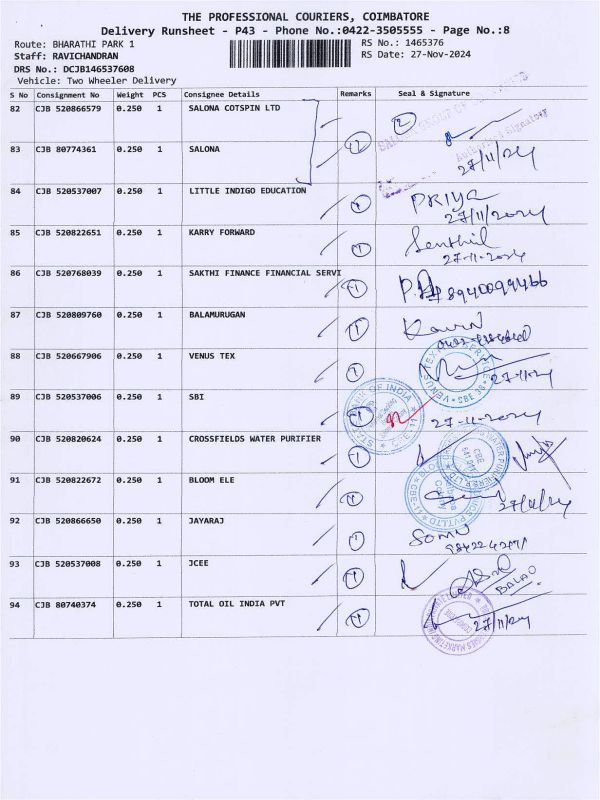 THE PROFESSIONAL COURIERS, COIMBATORE
Delivery Runsheet - P43 - Phone No.:0422-3505555 - Page No.:8
Route: BHARATHI PARK 1
RS No.: 1465376
Staff: RAVICHANDRAN
RS Date: 27-Nov-2024
DRS No.: DCJB146537608
Vehicle: Two Wheeler Delivery
S No Consignment No Weight PCS Consignee Details Remarks Seal & Signature
82 CJB 520866579 0.250 1 SALONA COTSPIN LTD 2
Authorised Signatory
83 CJB 80774361 0.250 1 SALONA 27/11/24
84 CJB 520537007 0.250 1 LITTLE INDIGO EDUCATION PRIYA
27/11/2024
85 CJB 520822651 0.250 1 KARRY FORWARD Senthil
27-11-2024
86 CJB 520768039 0.250 1 SAKTHI FINANCE FINANCIAL SERVI 8940099466
87 CJB 520809760 0.250 1 BALAMURUGAN
88 CJB 520667906 0.250 1 VENUS TEX 27-11-24
89 CJB 520537006 0.250 1 SBI 27-11-2024
90 CJB 520820624 0.250 1 CROSSFIELDS WATER PURIFIER
91 CJB 520822672 0.250 1 BLOOM ELE 27/11/24
92 CJB 520866650 0.250 1 JAYARAJ
93 CJB 520537008 0.250 1 JCEE
94 CJB 80740374 0.250 1 TOTAL OIL INDIA PVT 27/11/24